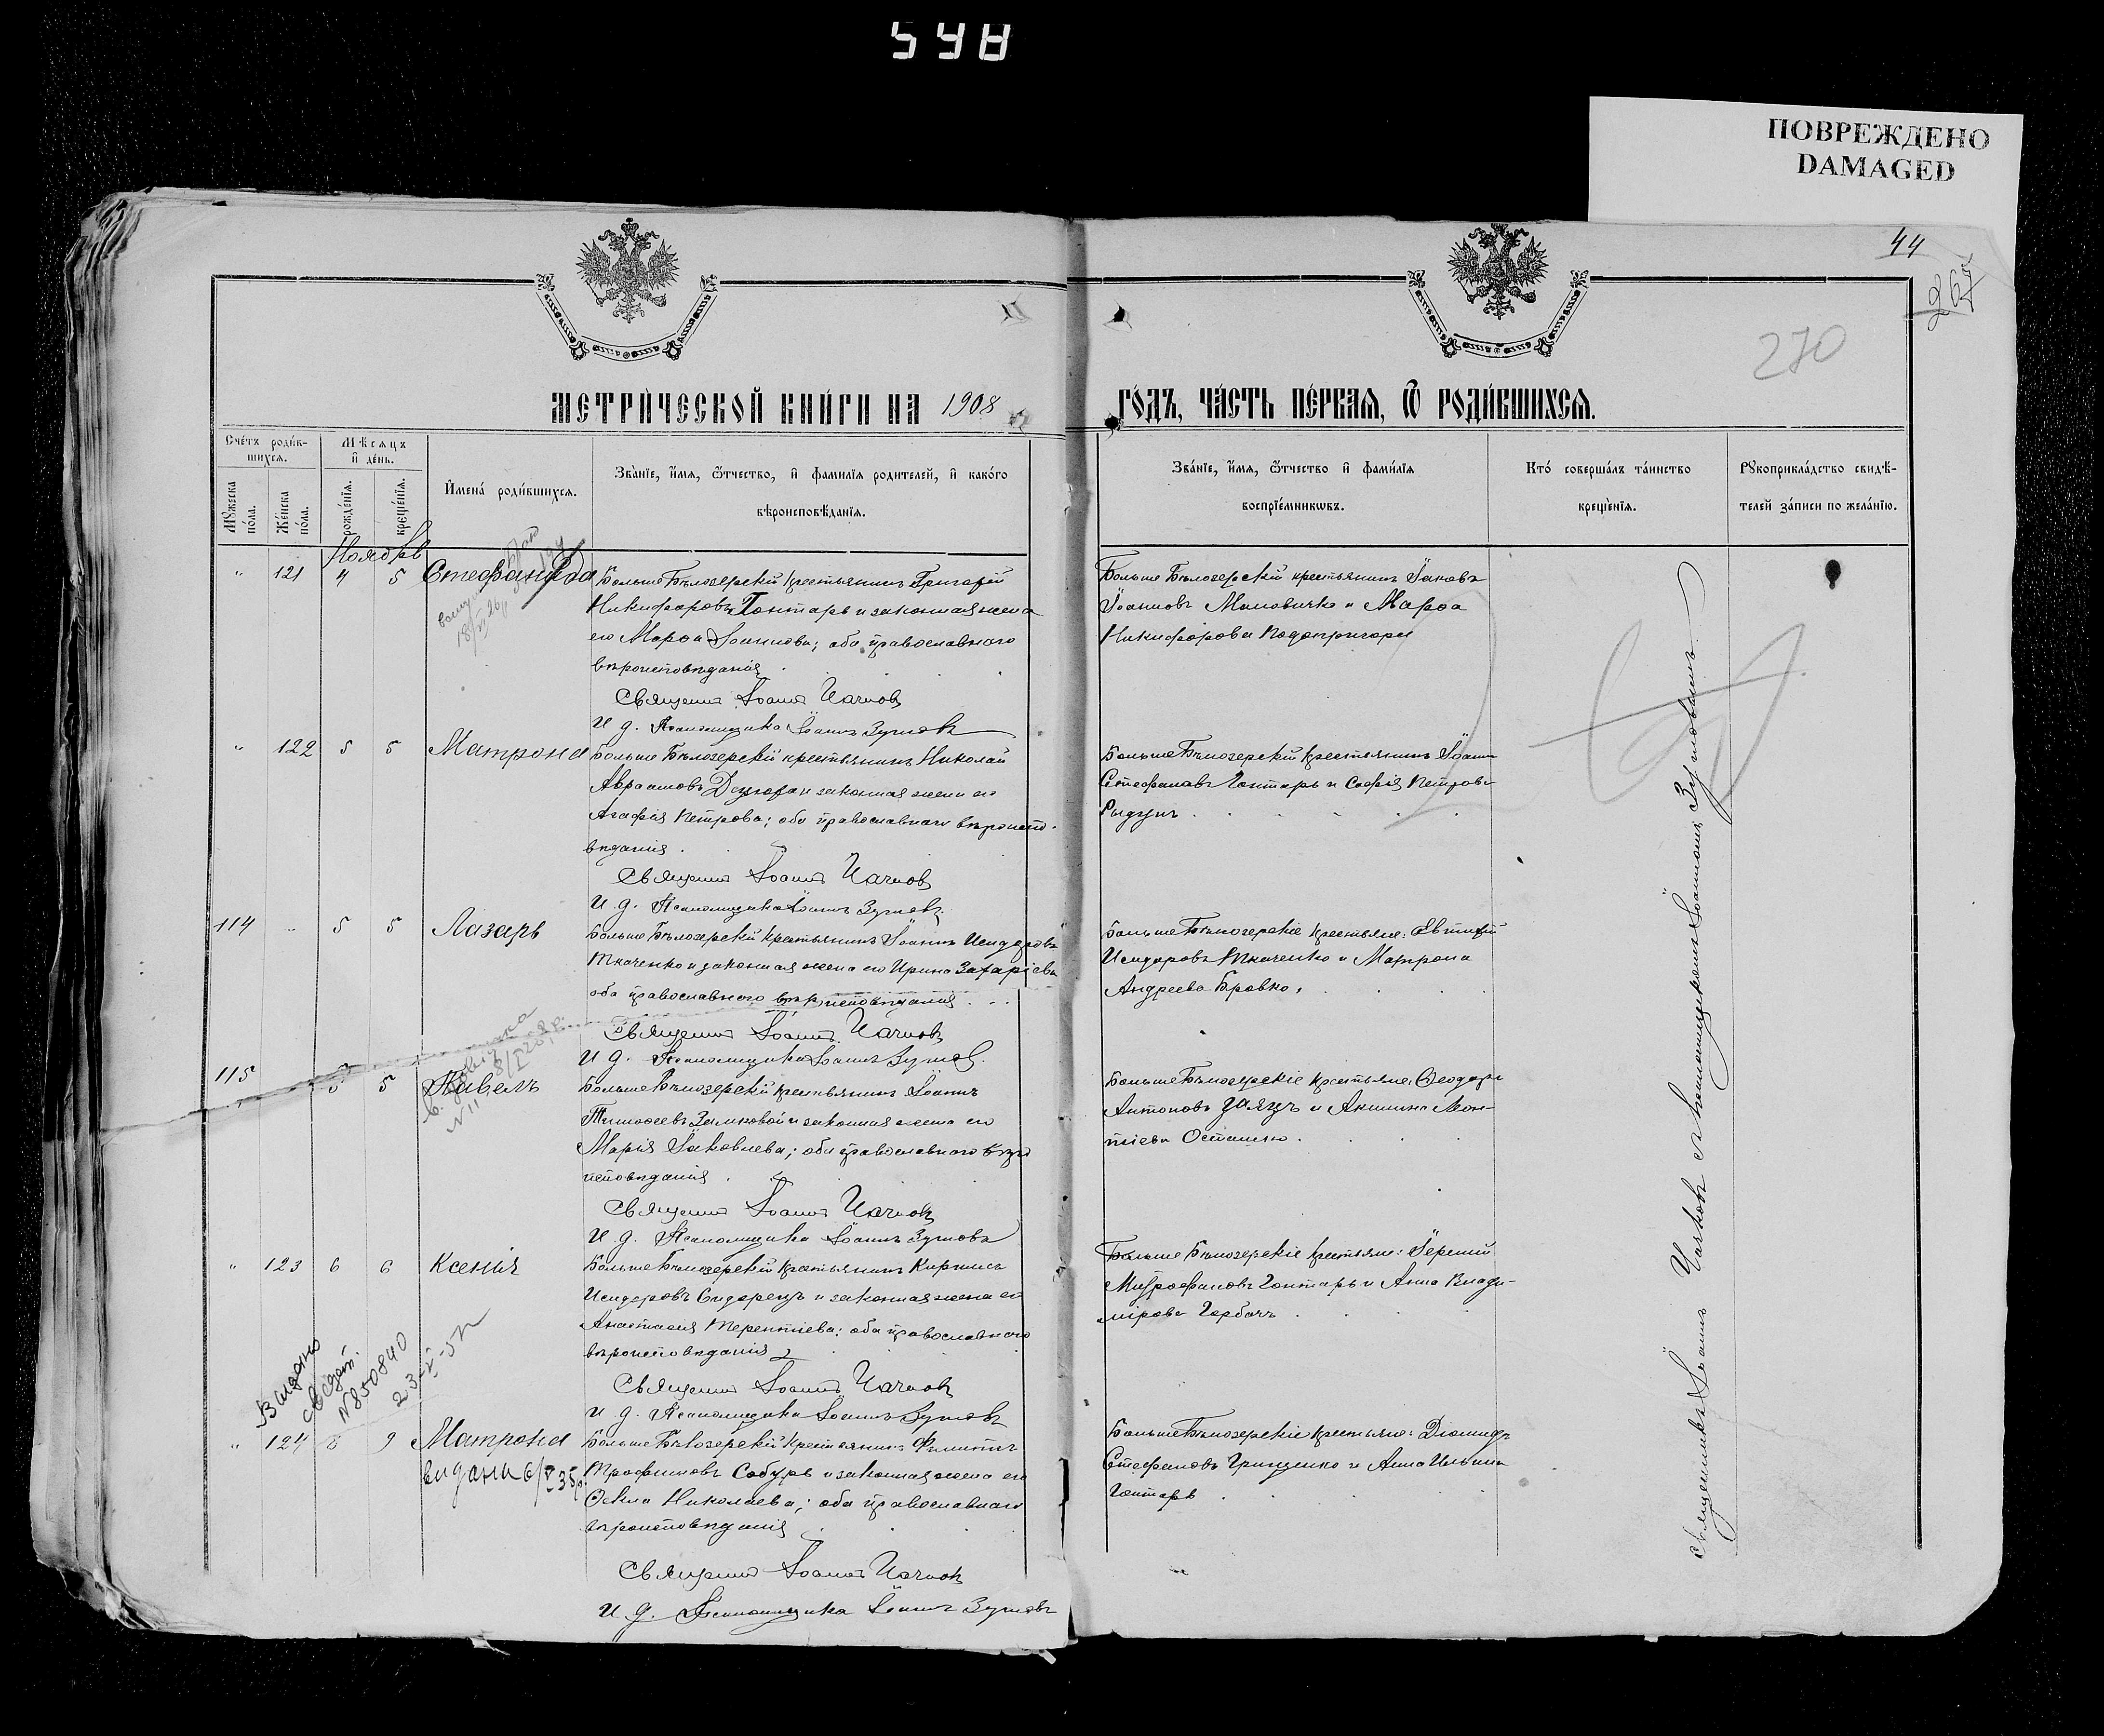 598
ПОВРЕЖДЕНО
DAMAGED
44
270
МЕТРИ́ЧЕСКОЙ КНИ́ГИ НА 1908
ГО́ДЪ, ЧА́СТЬ ПЕ́РВАЯ, Ѿ РОДИ́ВШИХСЯ.
Сче́тъ роди́в-
шихся.
Мѣ́сяцъ
и҆ де́нь.
Мꙋ́жеска по́ла.
Же́нска по́ла.
рожде́нїя.
креще́нїя.
И҆мена̀ роди́вшихся.
Зва́нїе, и҆́мя, ѻ҆́тчество, и҆ фами́лїя родителей, и҆ како́го
вѣроисповѣ́данїя.
Зва́нїе, и҆́мя, ѻ҆́тчество и҆ фами́лїя
воспрїе́мникѡвъ.
Кто̀ соверша́лъ та́инство
креще́нїя.
Рꙋкоприкла́дство свидѣ́-
телей за́писи по жела́нїю.
Ноябрь
" 121 4 5 Стефанида
Больше Бѣлозерскій крестьянинъ Григорій
Никифоровъ Гонтарь и законная жена
его Марѳа Іоаннова; оба православнаго
вѣроисповѣданія
Священникъ Іоаннъ
И. д. Псаломщика Іоаннъ Зутовъ
Больше Бѣлозерскій крестьянинъ Іаковъ
Іоанновъ Маловичко и Марѳа
Никифорова Подопригора
" 122 5 5 Матрона
Больше Бѣлозерскій крестьянинъ Николай
Авраамовъ и законная жена его
Агафія Петрова; оба православнаго вѣроиспо-
вѣданія
Священникъ Іоаннъ
И. д. Псаломщика Іоаннъ Зутовъ
Больше Бѣлозерскій крестьянинъ Іоаннъ
Стефановъ Гонтарь и Софія Петрова
114 " 5 5 Лазарь
Больше Бѣлозерскій крестьянинъ Іоаннъ Исидоровъ
Ткаченко и законная жена его Ирина Захаріева
оба православнаго вѣроисповѣданія
Священникъ Іоаннъ
И. д. Псаломщика Іоаннъ Зутовъ
Больше Бѣлозерскіе крестьяне: Евтихій
Исидоровъ Ткаченко и Матрона
Андреева Бровко.
115 5 5 Павелъ
Больше Бѣлозерскій крестьянинъ Іоаннъ
Тимоѳеевъ Замковой и законная жена его
Марія Іаковлева; оба православнаго вѣро
исповѣданія
Священникъ Іоаннъ
И. д. Псаломщика Іоаннъ Зутовъ
Больше Бѣлозерскіе крестьяне: Ѳеодоръ
Антоновъ Заяцъ и Акилина Леон-
тіева Осташко.
" 123 6 6 Ксенія
Больше Бѣлозерскій крестьянинъ Кириллъ
Исидоровъ Сидорецъ и законная жена его
Анастасія Терентіева; оба православнаго
вѣроисповѣданія
Священникъ Іоаннъ
И. д. Псаломщика Іоаннъ Зутовъ
Больше Бѣлозерскіе крестьяне: Іеремій
Митрофановъ Гонтарь и Анна Влади-
мірова Горбачъ
Выдано
свидет.
N 850840
23-II-57
" 124 8 9 Матрона
Больше Бѣлозерскій крестьянинъ Филиппъ
Трофимовъ Собурь и законная жена его
Ѳекла Николаева; оба православнаго
вѣроисповѣданія
Священникъ Іоаннъ
И. д. Псаломщика Іоаннъ Зутовъ
Больше Бѣлозерскіе крестьяне: Діомидъ
Стефановъ Грищенко и Анна Ильина
Гонтарь